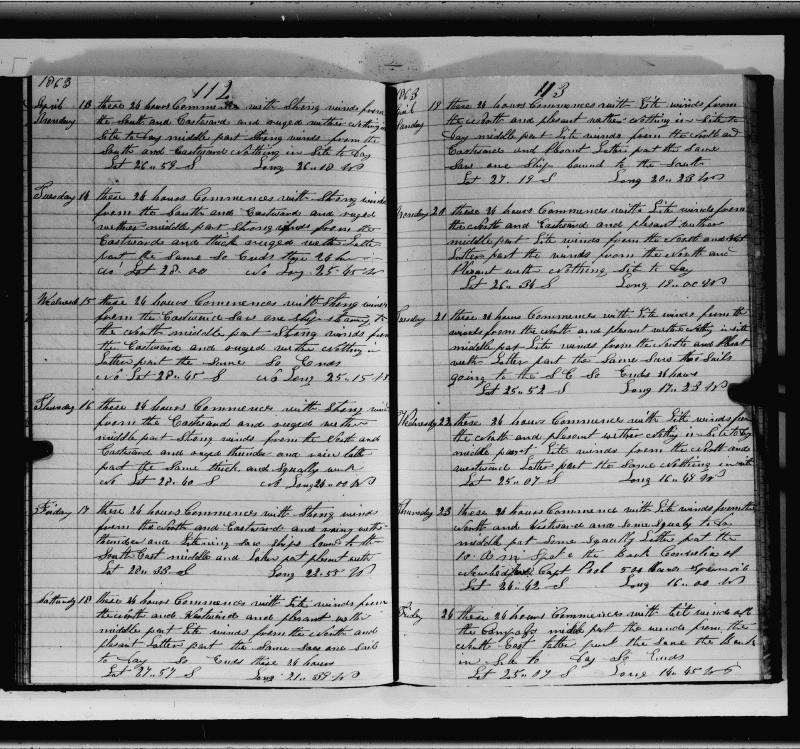 1863
112
April 13 these 24 hours Commences with Strong winds from
Munday the South and Eastward and ruged wether Nothing in
Site to Day middle part Strong winds from the
South and Eastward Nothing in Site to Day
Lat 26 " 59 S Long 26 " 18 W
Tuesday 14 these 24 hours Commences with Strong winds
from the South and Eastward and ruged
wether middle part Strong winds from the
Eastwards and thick ruged weth Latter
part the Same So Ends these 24 hours
Lat 28 " 00 No Long 25 " 45 W
Wednesd 15 these 24 hours Commences with Strong winds
from the Eastward Saw one Ship Steering to
the North middle part Strong winds from
the Eastward and ruged wether Nothing in
Latter part the Same So Ends
No Lat 28 " 45 S No Long 25 " 15 W
Thursday 16 these 24 hours Commences with Strong winds
from the Eastward and ruged wether
middle part Strong winds from the North and
Eastward and ruged thunder and rain latter
part the Same thick and Squally weth
No Lat 28 " 40 S No Long 24 " 00 W
Friday 17 these 24 hours Commences with Strong winds
from the North and Eastward and rainy with
thunder and Litening Saw Ships bound to the
South East middle and Latter part plesent weth
Lat 28 " 38 S Long 22 " 55 W
Satturday 18 these 24 hours Commences with Lite winds from
the North and Westward and plesant weth
middle part Lite winds from the North and
plesant Latter part the Same Saw one Sail
to Day So Ends these 24 hours
Lat 27 " 57 S Long 21 " 39 W
1863
113
April 19 these 24 hours Commences with Lite winds from
Sunday the North and plesent wether Nothing in Site to
Day middle part Lite winds from the North and
Eastward and Plesant Latter part the Same
Saw one Ship bound to the South
Lat 27 " 19 S Long 20 " 23 W
Monday 20 these 24 hours Commences with Lite winds from
the North and Eastward and plesant wether
middle part Lite winds from the North and West
Latter part the winds from the North and
Plesant weth Nothing Site to Day
Lat 26 " 36 S Long 19 " 00 W
Tuesday 21 these 24 hours Commences with Lite winds from the
winds from the North and plesant wether Nothing in site
middle part Lite winds from the North and Plesant
weth Latter part the Same Saw three Sails
going to the S E So Ends 24 hours
Lat 25 " 52 S Long 17 " 23 W
Wednesdy 22 these 24 hours Commences with Lite winds from
the North and plesent wether Nothing in Site to Day
middle parst Lite winds from the North and
westward Latter part the Same Nothing in site
Lat 25 " 07 S Long 16 " 49 W
Thursday 23 these 24 hours Commence with Lite winds from the
North and Westward and Some Squaly to Day
midday part Some Squally Latter part the
10 A m Spoke the Bark Cornelias of
Newbedford Capt 500 Sperm oil
Lat 24 " 42 S Long 16 " 00 W
Friday 24 these 24 hours Commences with Lit winds off
the Compass middle part the winds from the
North East Latter part the Same the Bark
in Site to Day So Ends
Lat 25 " 07 S Long 14 " 45 W